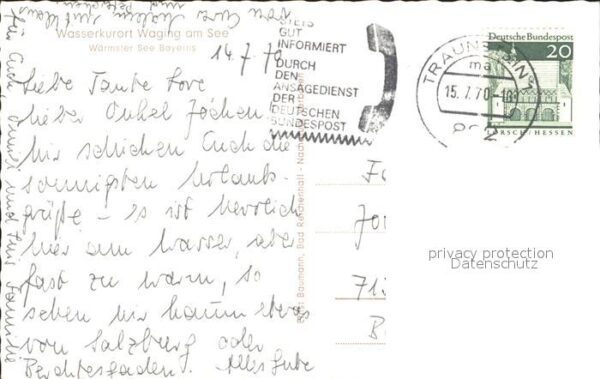 Wasserkurort Waging am See
Wärmster See Bayerns
14.7.70
Liebe Tante Lore
lieber Onkel Jochen
Wir schicken Euch die
sonnigsten Urlaubs-
grüße – es ist herrlich
hier am Wasser, aber
fast zu warm, so
sehen wir kaum etwas
von Salzburg oder
Berchtesgaden. Alles Gute
für Euch und Familie
STETS
GUT
INFORMIERT
DURCH
DEN
ANSAGEDIENST
DER
DEUTSCHEN
BUNDESPOST
TRAUNSTEIN 1
15.7.70
Deutsche Bundespost
20
LORSCH / HESSEN
Baumann, Bad Reichenhall
privacy protection
Datenschutz